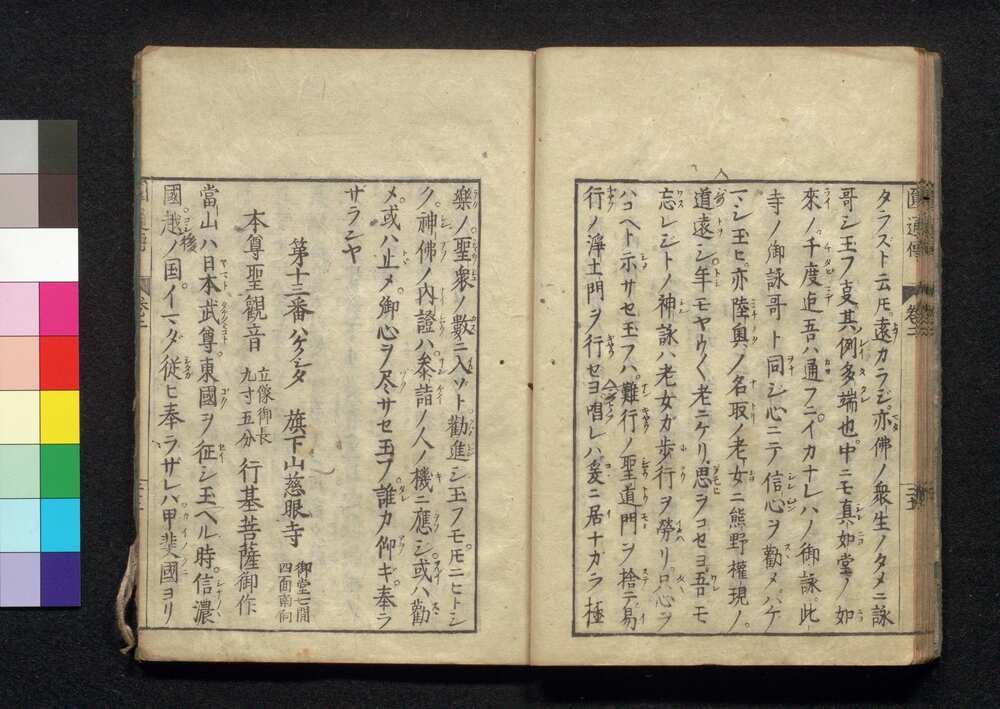 タラズト云ヒ遠カラジ亦佛ノ衆生ノタメニ詠
哥シ玉フ支其例多端也中ニモ真如堂ノ如
來ノ千度迠吾ハ通フニイカナレハノ御詠此
寺ノ御詠哥ト同シ心ニテ信心ヲ勸メハゲ
マシ玉ヒ亦陸奥ノ名取ノ老女ニ熊野權現ノ
道遠シ年モヤウ〱老ニケリ思ヲコセヨ吾モ
忘レジトノ神詠ハ老女ガ歩行ヲ勞リ只心ヲ
ハコヘト示サセ玉フハ難行ノ聖道門ヲ捨テ易
行ノ淨土門ヲ行セヨ唱レハ爰ニ居ナカラ極
圓通傳
卷二
樂ノ聖衆ノ數ニ入ソト勸進シ玉フモ𪜈ニヒトシ
ク神佛ノ内證ハ叅詣ノ人ノ機ニ應シ或ハ勸
メ或ハ止メ御心ヲ尽サセ玉フ誰カ仰ギ奉ラ
ザラシヤ
第十三番ハケシタ 旗下山慈眼寺 御堂七間四面南向
本尊聖觀音 立像御長九寸五分 行基菩薩御作
當山ハ日本武尊東國ヲ征シ玉ヘル時信濃
國越ノ国イマダ従ヒ奉ラザレハ甲斐國ヨリ